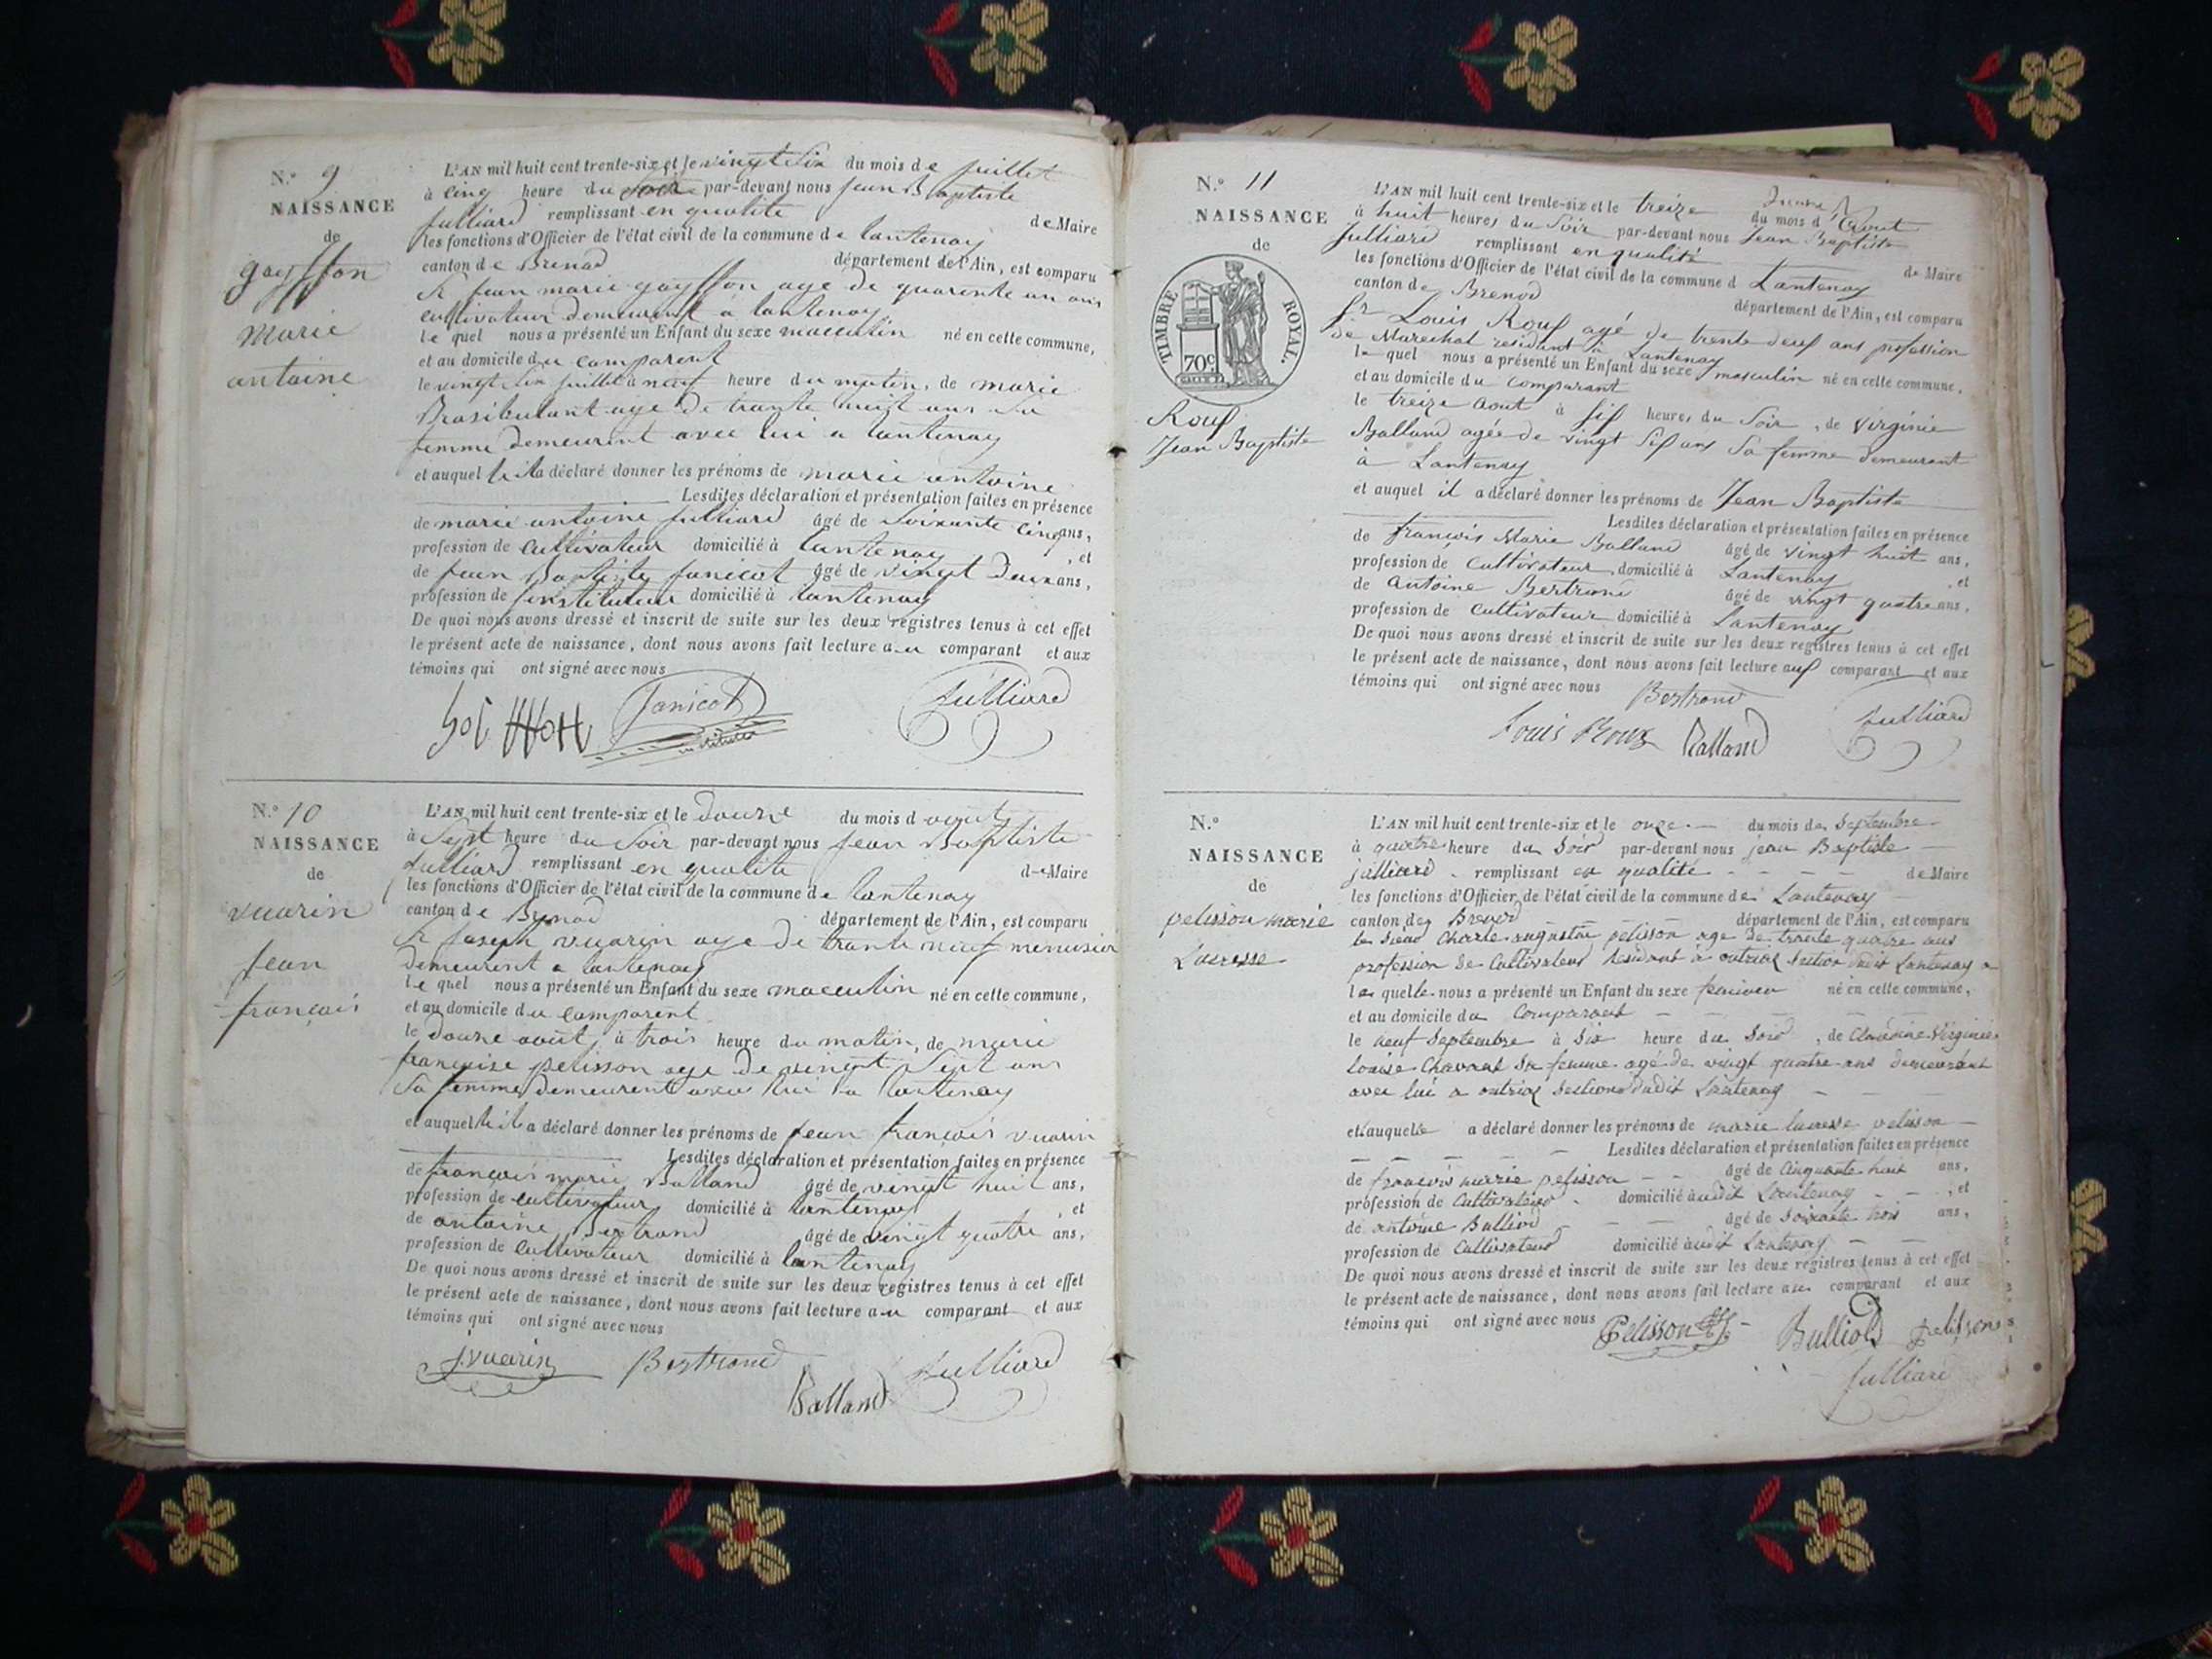 N.º 9
NAISSANCE
de
gayffon
marie
antoine
L'AN mil huit cent trente-six et le vingt six du mois de juillet
à cinq heure du soir par-devant nous jean Baptiste
julliard remplissant en qualite de Maire
les fonctions d'Officier de l'état civil de la commune de lantenay
canton de Brenod département de l'Ain, est comparu
jean marie gayffon age de quarente un ans
cultivateur demeurent a lantenay
le quel nous a présenté un Enfant du sexe masculin né en cette commune,
et au domicile du comparent
le vingt six juillet à neuf heure du matin, de marie
age de trante huit ans sa
femme demeurent avec lui a lantenay
et auquel il a déclaré donner les prénoms de marie antoine
Lesdites déclaration et présentation faites en présence
de marie antoine julliard âgé de soixante cinq ans,
profession de cultivateur domicilié à lantenay , et
de jean Baptiste janicot âgé de vingt deux ans,
profession de instituteur domicilié à lantenay
De quoi nous avons dressé et inscrit de suite sur les deux registres tenus à cet effet
le présent acte de naissance, dont nous avons fait lecture au comparant et aux
témoins qui ont signé avec nous
Janicot Julliard
instituteur
N.º 10
NAISSANCE
de
vuarin
jean
françois
L'AN mil huit cent trente-six et le douze du mois d août
à sept heure du soir par-devant nous jean Baptiste
julliard remplissant en qualite de Maire
les fonctions d'Officier de l'état civil de la commune de lantenay
canton de Brenod département de l'Ain, est comparu
joseph vuarin age de trante neuf menusier
demeurent a lantenay
le quel nous a présenté un Enfant du sexe masculin né en cette commune,
et au domicile du comparent
le douze août à trois heure du matin, de marie
françoise pelisson age de vingt sept ans
sa femme demeurent avec lui a lantenay
et auquel il a déclaré donner les prénoms de jean françois vuarin
Lesdites déclaration et présentation faites en présence
de françois marie Balland âgé de vingt huit ans,
profession de cultivateur domicilié à lantenay , et
de antoine Bertrand âgé de vingt quatre ans,
profession de cultivateur domicilié à lantenay
De quoi nous avons dressé et inscrit de suite sur les deux registres tenus à cet effet
le présent acte de naissance, dont nous avons fait lecture au comparant et aux
témoins qui ont signé avec nous
J. vuarin Bertrand Julliard
Balland
N.º 11
NAISSANCE
de
TIMBRE ROYAL.
70c
Rouf
Jean Baptiste
L'AN mil huit cent trente-six et le treize du mois d'Aout
à huit heures du Soir par-devant nous Jean Baptiste
Julliard remplissant en qualité de Maire
les fonctions d'Officier de l'état civil de la commune d Lantenay
canton de Brenod département de l'Ain, est comparu
Sr Louis Rouf agé de trente deuf ans profession
de Marechal residant à Lantenay
le quel nous a présenté un Enfant du sexe masculin né en cette commune,
et au domicile du comparant
le treize Aout à sif heures du Soir, de Virginie
Balland agée de vingt sif ans sa femme demeurant
à Lantenay
et auquel il a déclaré donner les prénoms de Jean Baptiste
Lesdites déclaration et présentation faites en présence
de françois Marie Balland âgé de vingt huit ans,
profession de Cultivateur domicilié à Lantenay , et
de Antoine Bertrand âgé de vingt quatre ans,
profession de cultivateur domicilié à Lantenay
De quoi nous avons dressé et inscrit de suite sur les deux registres tenus à cet effet
le présent acte de naissance, dont nous avons fait lecture auf comparant et aux
témoins qui ont signé avec nous Bertrand
Louis Roux Balland Julliard
N.º
NAISSANCE
de
pelisson marie
Lucresse
L'AN mil huit cent trente-six et le onze du mois de Septembre
à quatre heure du Soir par-devant nous jean Baptiste
julliard remplissant en qualité de Maire
les fonctions d'Officier de l'état civil de la commune de Lantenay
canton de Brenod département de l'Ain, est comparu
le sieur Charle augustin pelisson age de trante quatre ans
profession de Cultivateur residant à outriaz section dudit Lantenay
la quelle nous a présenté un Enfant du sexe né en cette commune,
et au domicile du Comparant
le neuf Septembre à six heure du Soir, de Claudine Virginie
Louise Chavant sa femme agé de vingt quatre ans demeurant
avec lui a outriaz section dudit Lantenay
et auquelle a déclaré donner les prénoms de marie lucresse pelisson
Lesdites déclaration et présentation faites en présence
de françois marie pelisson âgé de Cinquante huit ans,
profession de Cultivateur domicilié audit Lantenay , et
de antoine Bulliod âgé de Soixante trois ans,
profession de Cultivateur domicilié audit Lantenay
De quoi nous avons dressé et inscrit de suite sur les deux registres tenus à cet effet
le présent acte de naissance, dont nous avons fait lecture au comparant et aux
témoins qui ont signé avec nous Pelisson Bulliod pelisson
Julliard